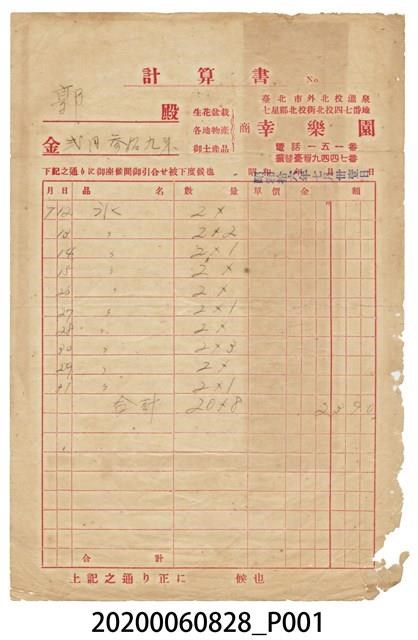 計算書 No.
臺北市外北投溫泉
七星郡北投街北投四七番地
郭 殿
生花盆栽
各地物產
御土産品
商 幸樂園
金 弐円
電話一五一番
振替臺灣九四四七番
下記之通りに御座候間御引合せ被下度候也
昭和拾六年七月卅壹日
月 日 品名 數量 單價 金額
7 12 2 ×
13 〃 2×2
14 〃 2×1
15 〃 2 ×
26 〃 2 ×
27 〃 2×1
28 〃 2 ×
30 〃 2×3
29 〃 2 ×
31 〃 2×1
合計 20×8 2 3 9 0
合計
上記之通り正に 候也
20200060828_P001